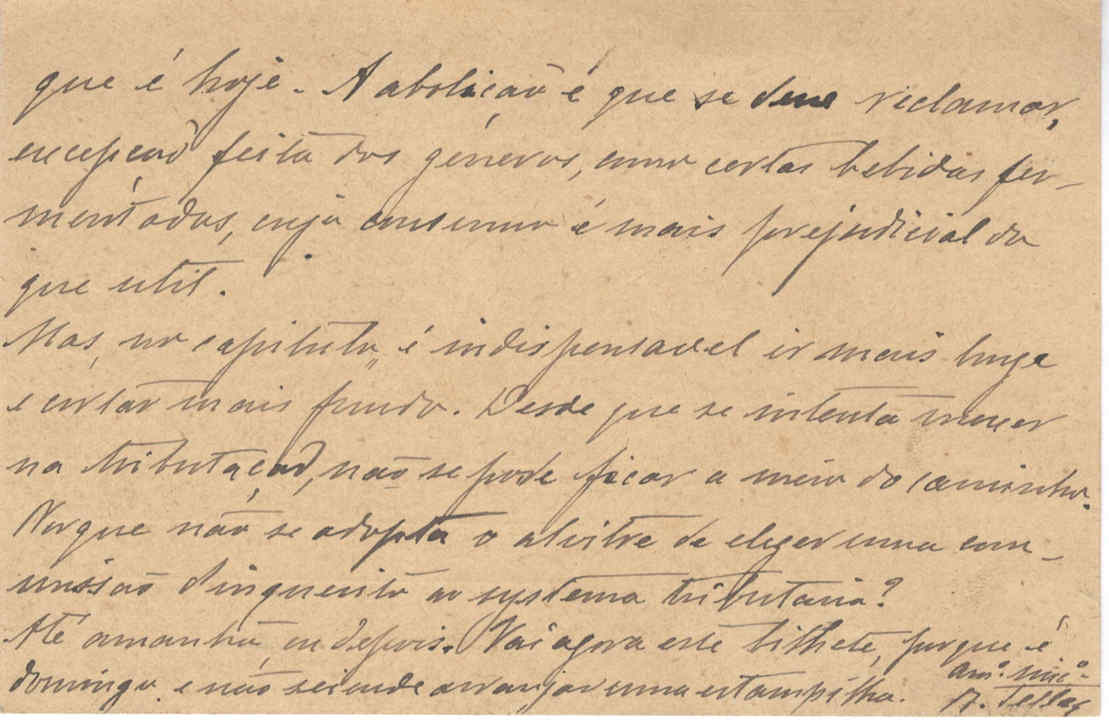 que é hoje. A abolição é que se deve reclamar,
excepção feita dos géneros, como certas bebidas fer-
mentadas, cujo consumo é mais prejudicial do
que util.
Mas, no capitulo, é indispensavel ir mais longe
e cortar mais fundo. Desde que se intenta mexer
na tributação, não se pode ficar a meio do caminho.
Porque não se adopta o alvitre de eleger uma com-
missão d'inquerito ao systema tributario?
Até amanhã ou depois. Vai agora este bilhete, porque é
domingo e não sei onde arranjar uma estampilha.
am.º mt.º
B. Telles